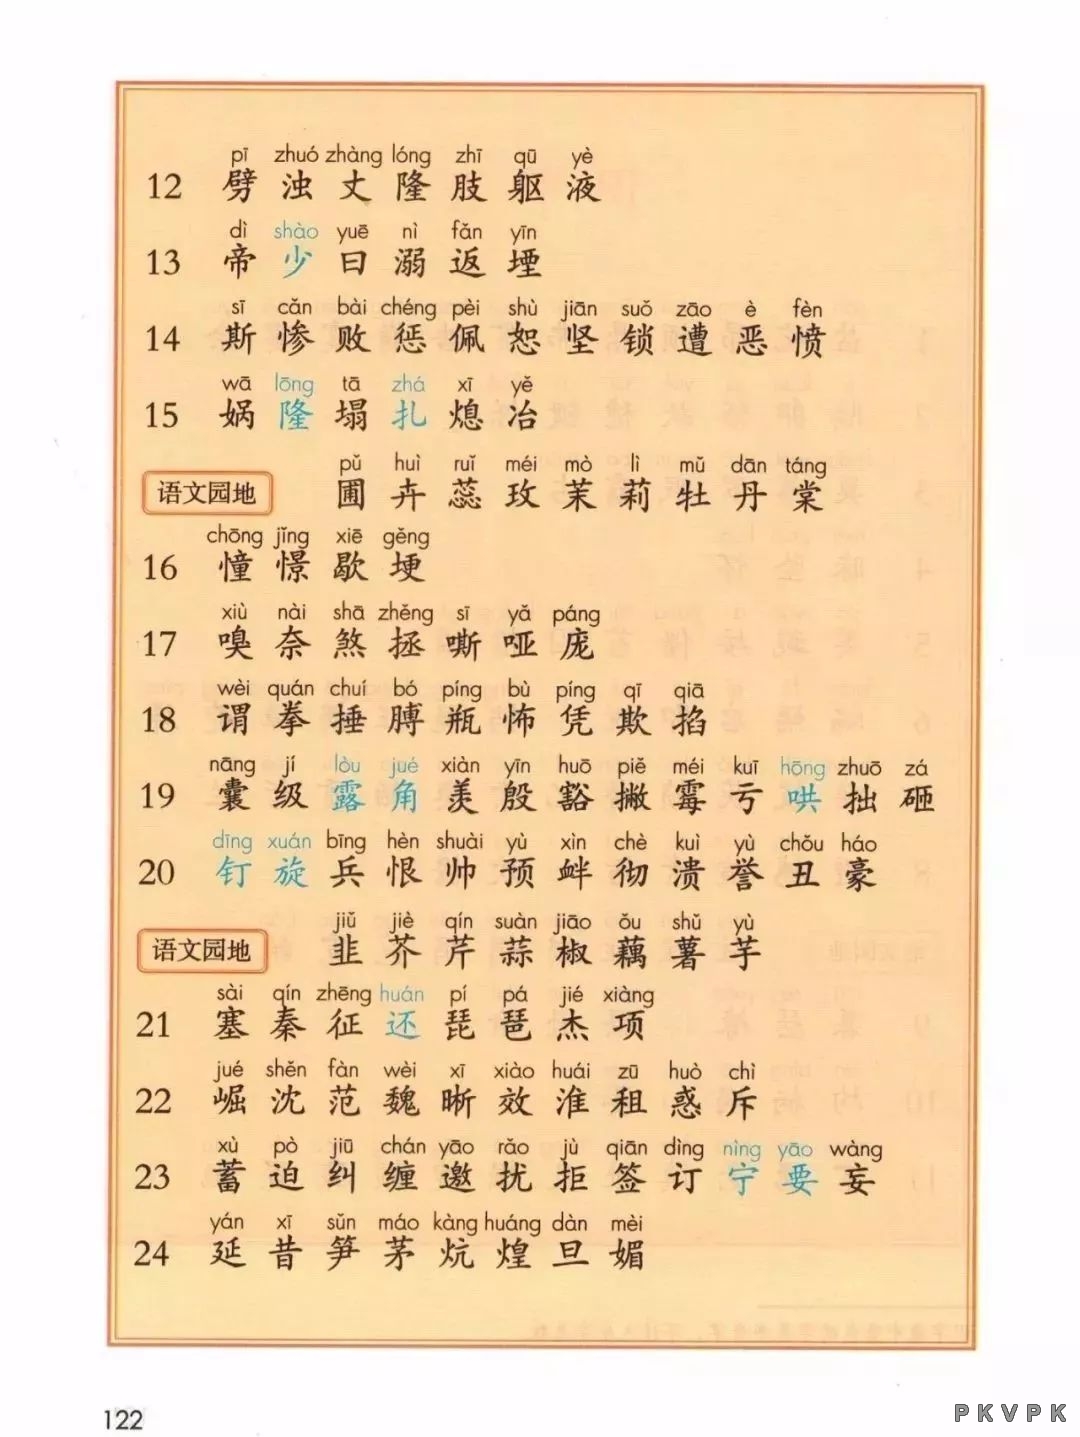 pī zhuó zhàng lóng zhī qū yè
12 劈 浊 丈 隆 肢 躯 液
dì shào yuē nì fǎn yīn
13 帝 少 曰 溺 返 堙
sī cǎn bài chéng pèi shù jiān suǒ zāo è fèn
14 斯 惨 败 惩 佩 恕 坚 锁 遭 恶 愤
wā lōng tā zhá xī yě
15 娲 隆 塌 扎 熄 冶
pǔ huì ruǐ méi mò lì mǔ dān táng
语文园地 圃 卉 蕊 玫 茉 莉 牡 丹 棠
chōng jǐng xiē gěng
16 憧 憬 歇 埂
xiù nài shā zhěng sī yǎ páng
17 嗅 奈 煞 拯 嘶 哑 庞
wèi quán chuí bó píng bù píng qī qiā
18 谓 拳 捶 膊 瓶 怖 凭 欺 掐
nāng jí lòu jué xiàn yīn huō piě méi kuī hōng zhuō zá
19 囊 级 露 角 羡 殷 豁 撇 霉 亏 哄 拙 砸
dīng xuán bīng hèn shuài yù xìn chè kuì yù chǒu háo
20 钉 旋 兵 恨 帅 预 衅 彻 溃 誉 丑 豪
jiǔ jiè qín suàn jiāo ǒu shǔ yù
语文园地 韭 芥 芹 蒜 椒 藕 薯 芋
sài qín zhēng huán pí pá jié xiàng
21 塞 秦 征 还 琵 琶 杰 项
jué shěn fàn wèi xī xiào huái zū huò chì
22 崛 沈 范 魏 晰 效 淮 租 惑 斥
xù pò jiū chán yāo rǎo jù qiān dìng nìng yāo wàng
23 蓄 迫 纠 缠 邀 扰 拒 签 订 宁 要 妄
yán xī sǔn máo kàng huáng dàn mèi
24 延 昔 笋 茅 炕 煌 旦 媚
122
PKVPK